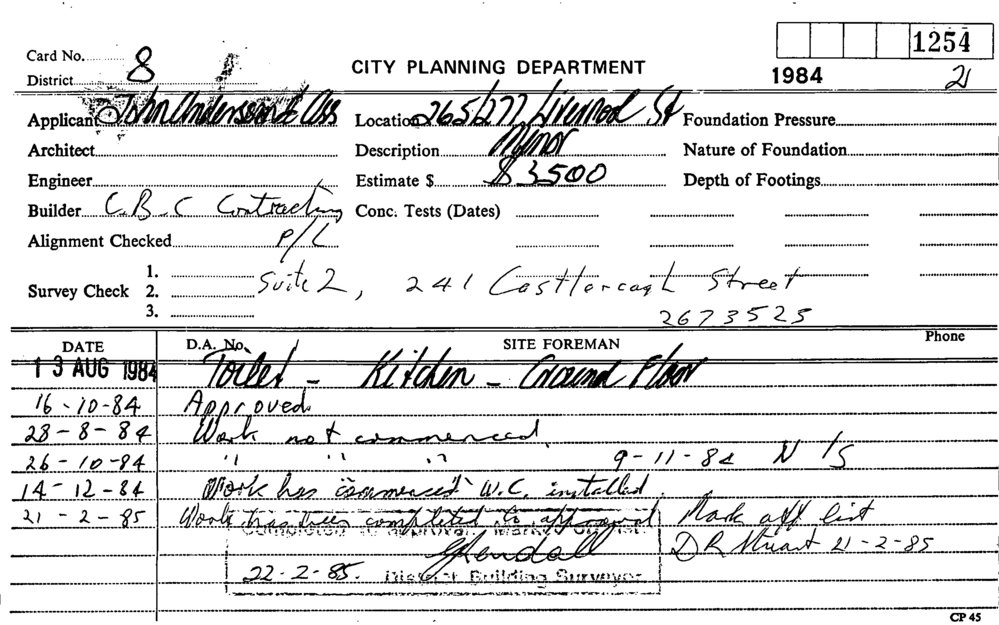 1254
Card No. 8
CITY PLANNING DEPARTMENT
1984 21
District
Applicant John Anderson & Ass Location 265/277 Liverpool St Foundation Pressure
Architect Description Minor Nature of Foundation
Engineer Estimate $ $3500 Depth of Footings
Builder C.B.C Contracting Conc. Tests (Dates)
Alignment Checked P/L
1.
Survey Check 2. Suite 2, 241 Castlereagh Street
3. 2673525
DATE D.A. No. SITE FOREMAN Phone
13 AUG 1984 Toilet - Kitchen - Ground Floor
16-10-84 Approved.
28-8-84 Work not commenced.
26-10-84 " " " 9-11-84 N/S
14-12-84 Work has commenced W.C. installed.
21-2-85 Work has been completed to approval Mark off list
Completed to approval. Marked off list
GKendall D R Stuart 21-2-85
22-2-85. District Building Surveyor
CP 45